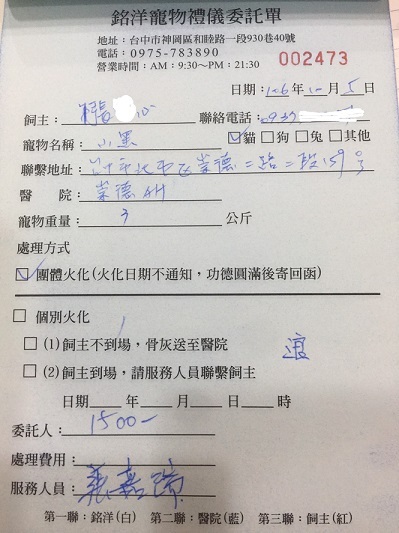 銘洋寵物禮儀委託單
地址：台中市神岡區和睦路一段930巷40號
電話：0975-783890
營業時間：AM：9:30～PM：21:30
002473
日期：106年10月5日
飼主： 聯絡電話：0937
寵物名稱：小黑 ☑貓□狗□兔□其他
聯繫地址：台中市北屯區崇德二路二段159号
醫院：崇德AH
寵物重量：3公斤
處理方式
☑團體火化(火化日期不通知，功德圓滿後寄回函)
□個別火化
□(1)飼主不到場，骨灰送至醫院
□(2)飼主到場，請服務人員聯繫飼主
日期 年 月 日 時
委託人：1500-
處理費用：
服務人員：
第一聯：銘洋(白) 第二聯：醫院(藍) 第三聯：飼主(紅)